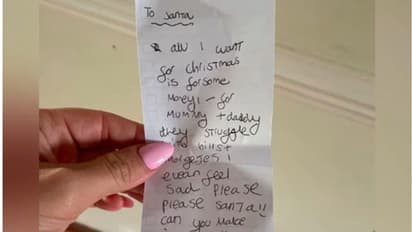 To Santa
all I want
for christmas
is for some
money! - for
mummy + daddy
they struggle
bills +
morgeses i
evean feel
sad please
please santa!!
can you make